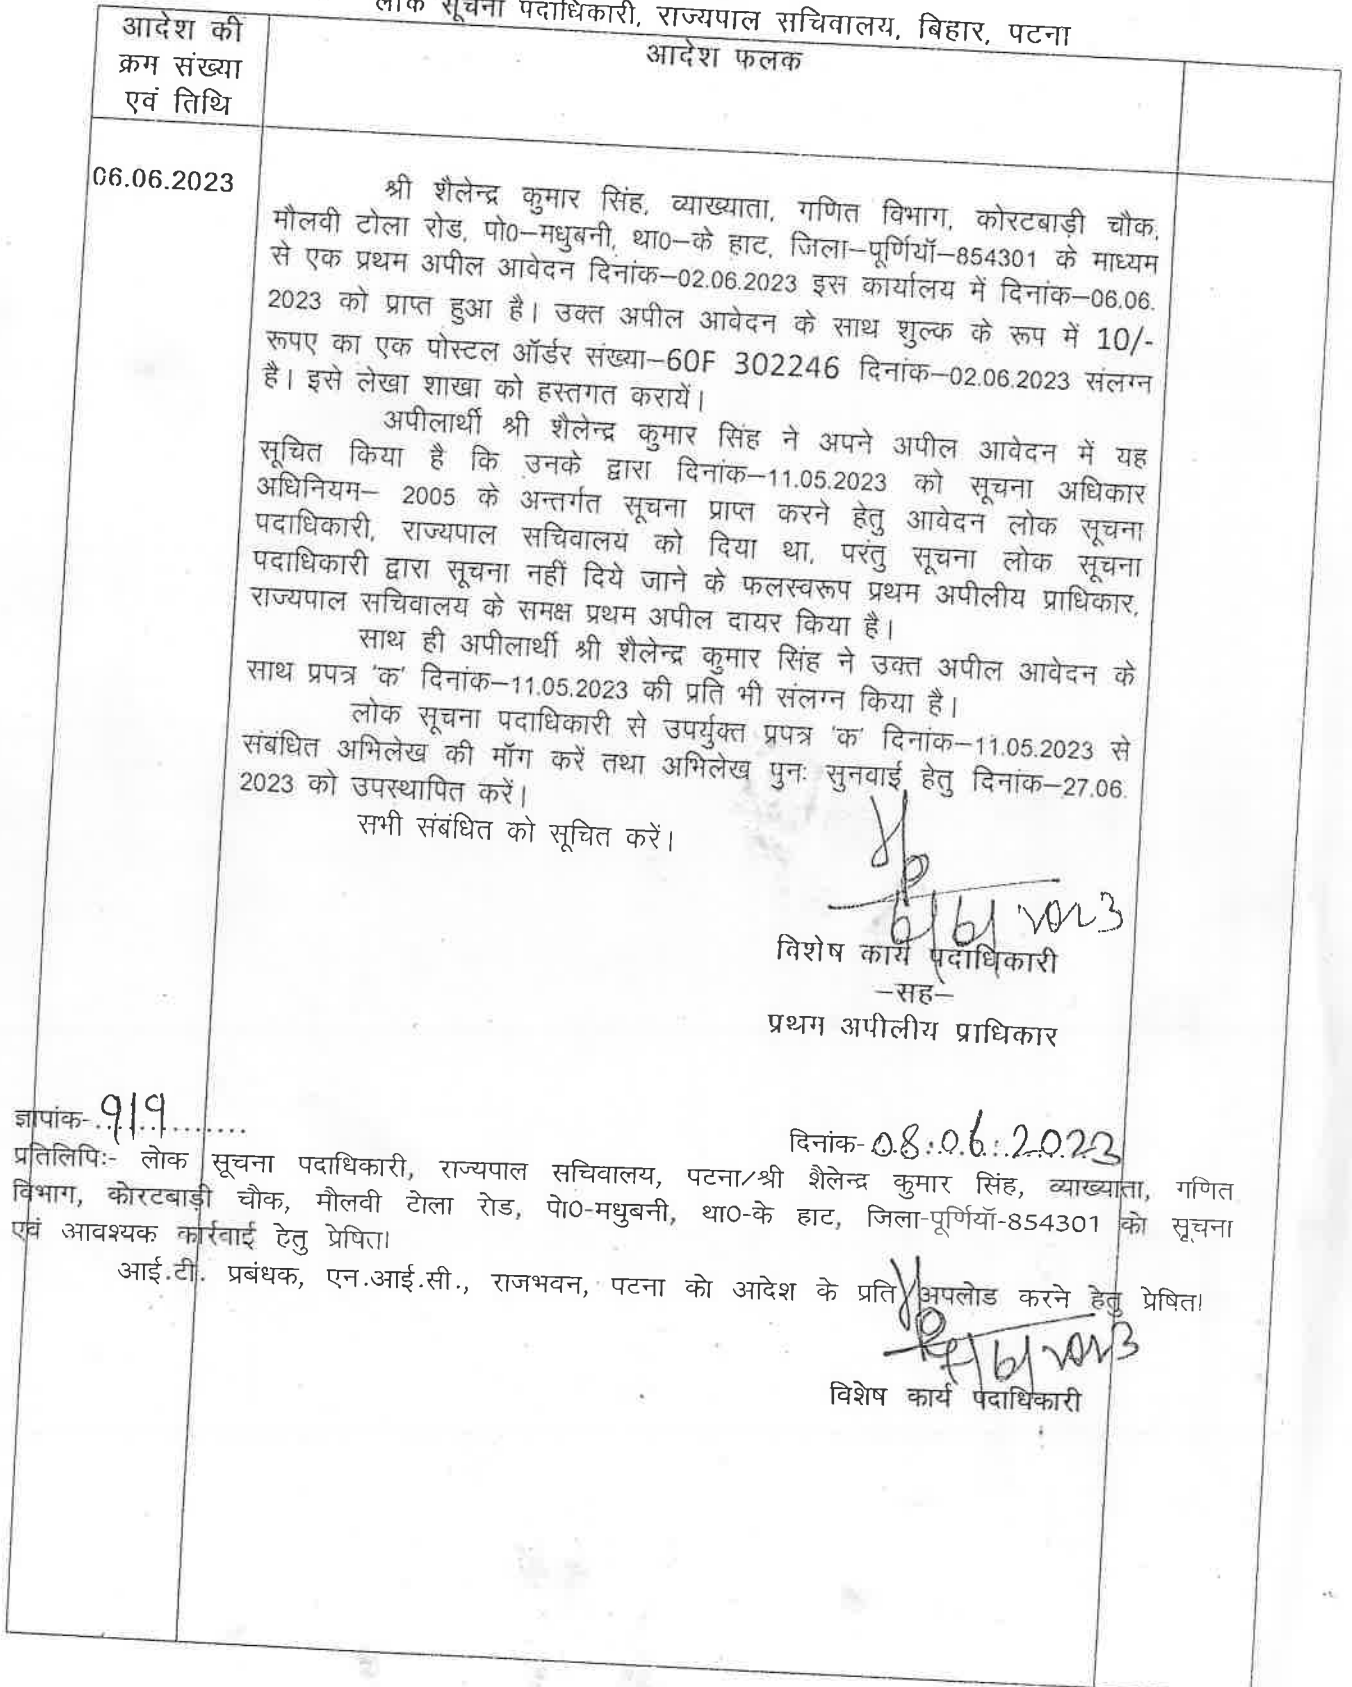 लोक सूचना पदाधिकारी, राज्यपाल सचिवालय, बिहार, पटना
आदेश की
क्रम संख्या
एवं तिथि
आदेश फलक
06.06.2023
श्री शैलेन्द्र कुमार सिंह, व्याख्याता, गणित विभाग, कोरटबाड़ी चौक,
मौलवी टोला रोड, पो0–मधुबनी, था0–के हाट, जिला–पूर्णियॉ–854301 के माध्यम
से एक प्रथम अपील आवेदन दिनांक–02.06.2023 इस कार्यालय में दिनांक–06.06.
2023 को प्राप्त हुआ है। उक्त अपील आवेदन के साथ शुल्क के रूप में 10/-
रूपए का एक पोस्टल ऑर्डर संख्या–60F 302246 दिनांक–02.06.2023 संलग्न
है। इसे लेखा शाखा को हस्तगत करायें।
अपीलार्थी श्री शैलेन्द्र कुमार सिंह ने अपने अपील आवेदन में यह
सूचित किया है कि उनके द्वारा दिनांक–11.05.2023 को सूचना अधिकार
अधिनियम– 2005 के अन्तर्गत सूचना प्राप्त करने हेतु आवेदन लोक सूचना
पदाधिकारी, राज्यपाल सचिवालय को दिया था, परंतु सूचना लोक सूचना
पदाधिकारी द्वारा सूचना नहीं दिये जाने के फलस्वरूप प्रथम अपीलीय प्राधिकार,
राज्यपाल सचिवालय के समक्ष प्रथम अपील दायर किया है।
साथ ही अपीलार्थी श्री शैलेन्द्र कुमार सिंह ने उक्त अपील आवेदन के
साथ प्रपत्र 'क' दिनांक–11.05.2023 की प्रति भी संलग्न किया है।
लोक सूचना पदाधिकारी से उपर्युक्त प्रपत्र 'क' दिनांक–11.05.2023 से
संबंधित अभिलेख की मॉग करें तथा अभिलेख पुनः सुनवाई हेतु दिनांक–27.06.
2023 को उपस्थापित करें।
सभी संबंधित को सूचित करें।
6/6/2023
विशेष कार्य पदाधिकारी
–सह–
प्रथम अपीलीय प्राधिकार
ज्ञापांक-..919..........
दिनांक-08.06.2023
प्रतिलिपिः- लोक सूचना पदाधिकारी, राज्यपाल सचिवालय, पटना/श्री शैलेन्द्र कुमार सिंह, व्याख्याता, गणित
विभाग, कोरटबाड़ी चौक, मौलवी टोला रोड, पो0-मधुबनी, था0-के हाट, जिला-पूर्णियॉ-854301 को सूचना
एवं आवश्यक कार्रवाई हेतु प्रेषित।
आई.टी. प्रबंधक, एन.आई.सी., राजभवन, पटना को आदेश के प्रति अपलोड करने हेतु प्रेषित।
विशेष कार्य पदाधिकारी